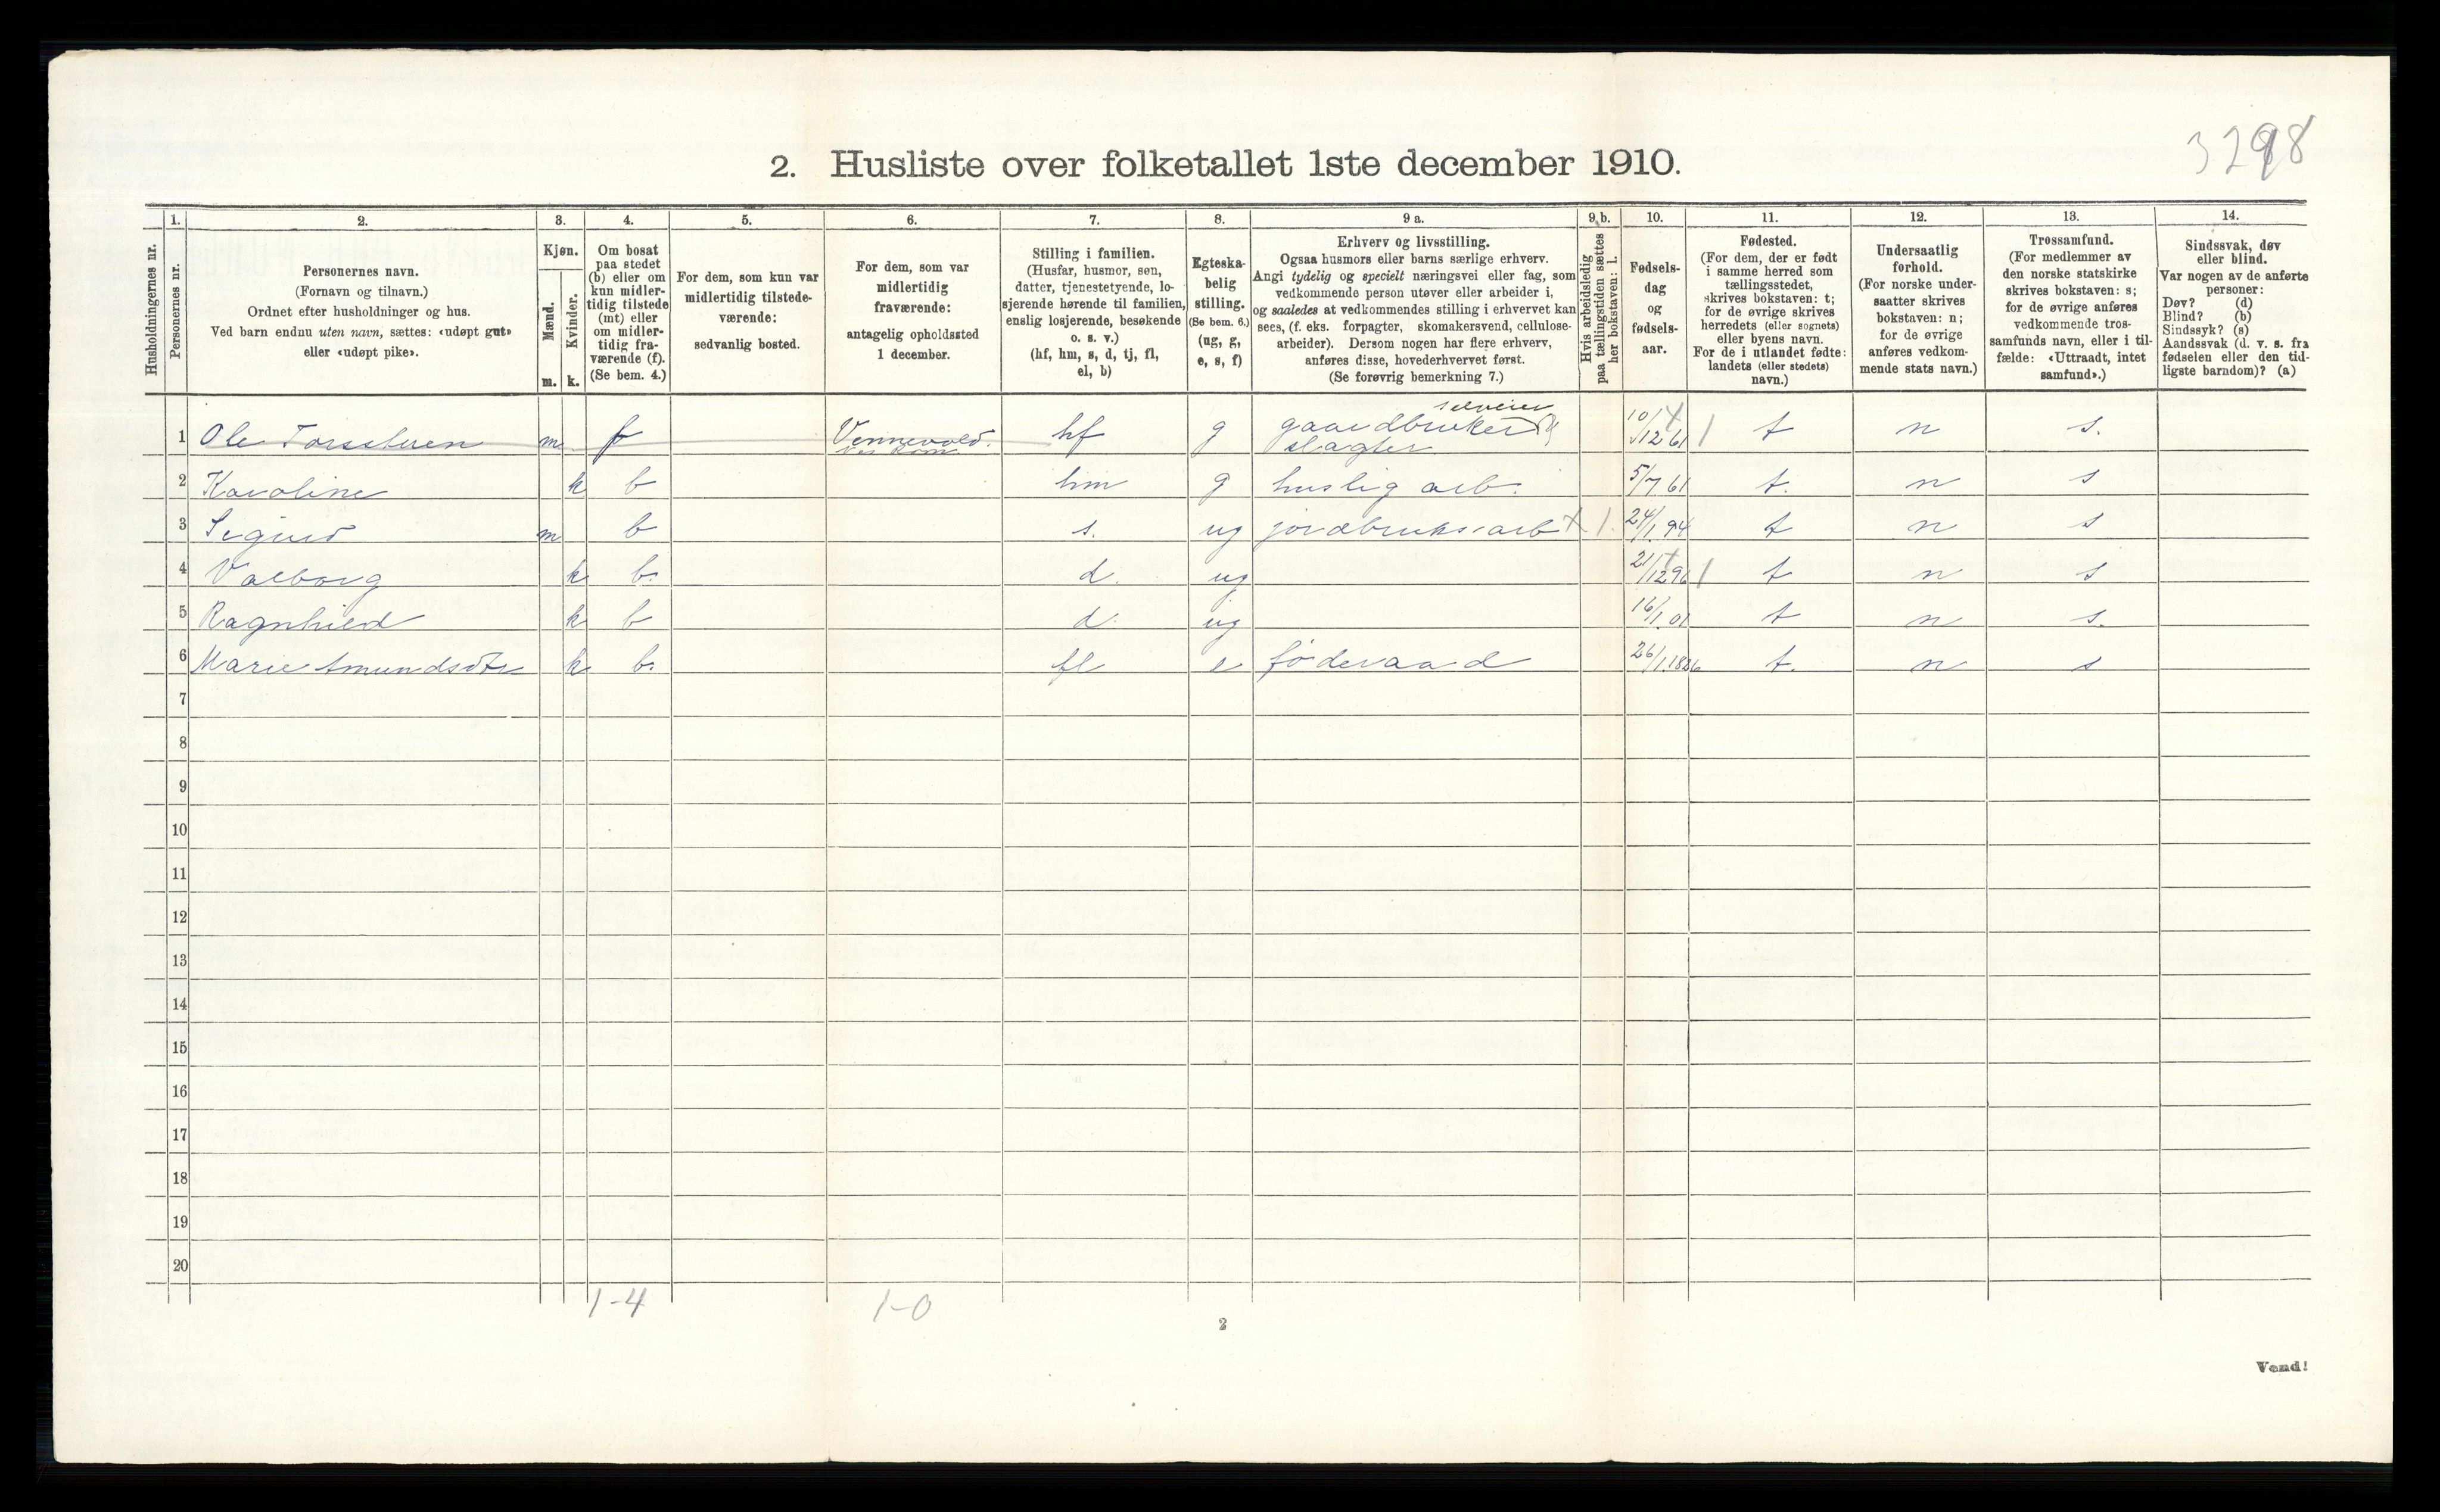 3298
2. Husliste over folketallet 1ste december 1910.
Husholdningernes nr.
1. Personernes nr.
2. Personernes navn.
(Fornavn og tilnavn.)
Ordnet efter husholdninger og hus.
Ved barn endnu uten navn, sættes: «udøpt gut»
eller «udøpt pike».
3. Kjøn.
Mænd. m.
Kvinder. k.
4. Om bosat
paa stedet
(b) eller om
kun midler-
tidig tilstede
(mt) eller
om midler-
tidig fra-
værende (f).
(Se bem. 4.)
5. For dem, som kun var
midlertidig tilstede-
værende:
sedvanlig bosted.
6. For dem, som var
midlertidig
fraværende:
antagelig opholdssted
1 december.
7. Stilling i familien.
(Husfar, husmor, søn,
datter, tjenestetyende, lo-
sjerende hørende til familien,
enslig losjerende, besøkende
o. s. v.)
(hf, hm, s, d, tj, fl,
el, b)
8. Egteska-
belig
stilling.
(Se bem. 6.)
(ug, g,
e, s, f)
9 a. Erhverv og livsstilling.
Ogsaa husmors eller barns særlige erhverv.
Angi tydelig og specielt næringsvei eller fag, som
vedkommende person utøver eller arbeider i,
og saaledes at vedkommendes stilling i erhvervet kan
sees, (f. eks. forpagter, skomakersvend, cellulose-
arbeider). Dersom nogen har flere erhverv,
anføres disse, hovederhvervet først.
(Se forøvrig bemerkning 7.)
9 b. Hvis arbeidsledig
paa tællingstiden sættes
her bokstaven: l.
10. Fødsels-
dag
og
fødsels-
aar.
11. Fødested.
(For dem, der er født
i samme herred som
tællingsstedet,
skrives bokstaven: t;
for de øvrige skrives
herredets (eller sognets)
eller byens navn.
For de i utlandet fødte:
landets (eller stedets)
navn.)
12. Undersaatlig
forhold.
(For norske under-
saatter skrives
bokstaven: n;
for de øvrige
anføres vedkom-
mende stats navn.)
13. Trossamfund.
(For medlemmer av
den norske statskirke
skrives bokstaven: s;
for de øvrige anføres
vedkommende tros-
samfunds navn, eller i til-
fælde: «Uttraadt, intet
samfund».)
14. Sindssvak, døv
eller blind.
Var nogen av de anførte
personer:
Døv? (d)
Blind? (b)
Sindssyk? (s)
Aandssvak (d. v. s. fra
fødselen eller den tid-
ligste barndom)? (a)
1 Ole m f hf g selveier gaardbruker slagter 10/12 61 t n s.
2 Karoline k b hm g huslig arb. 5/7 61 t. n s
3 Sigurd m b s. ug jordbruksarb 24/1 94 t n s
4 Valborg k b. d. ug 21/12 96 t n s
5 Ragnhild k b d. ug 16/1 01 t n s.
6 Marie Amundsdtr k b. fl e føderaad 26/1 1826 t. n s
7
8
9
10
11
12
13
14
15
16
17
18
19
20
1-4
1-0
2
Vend!